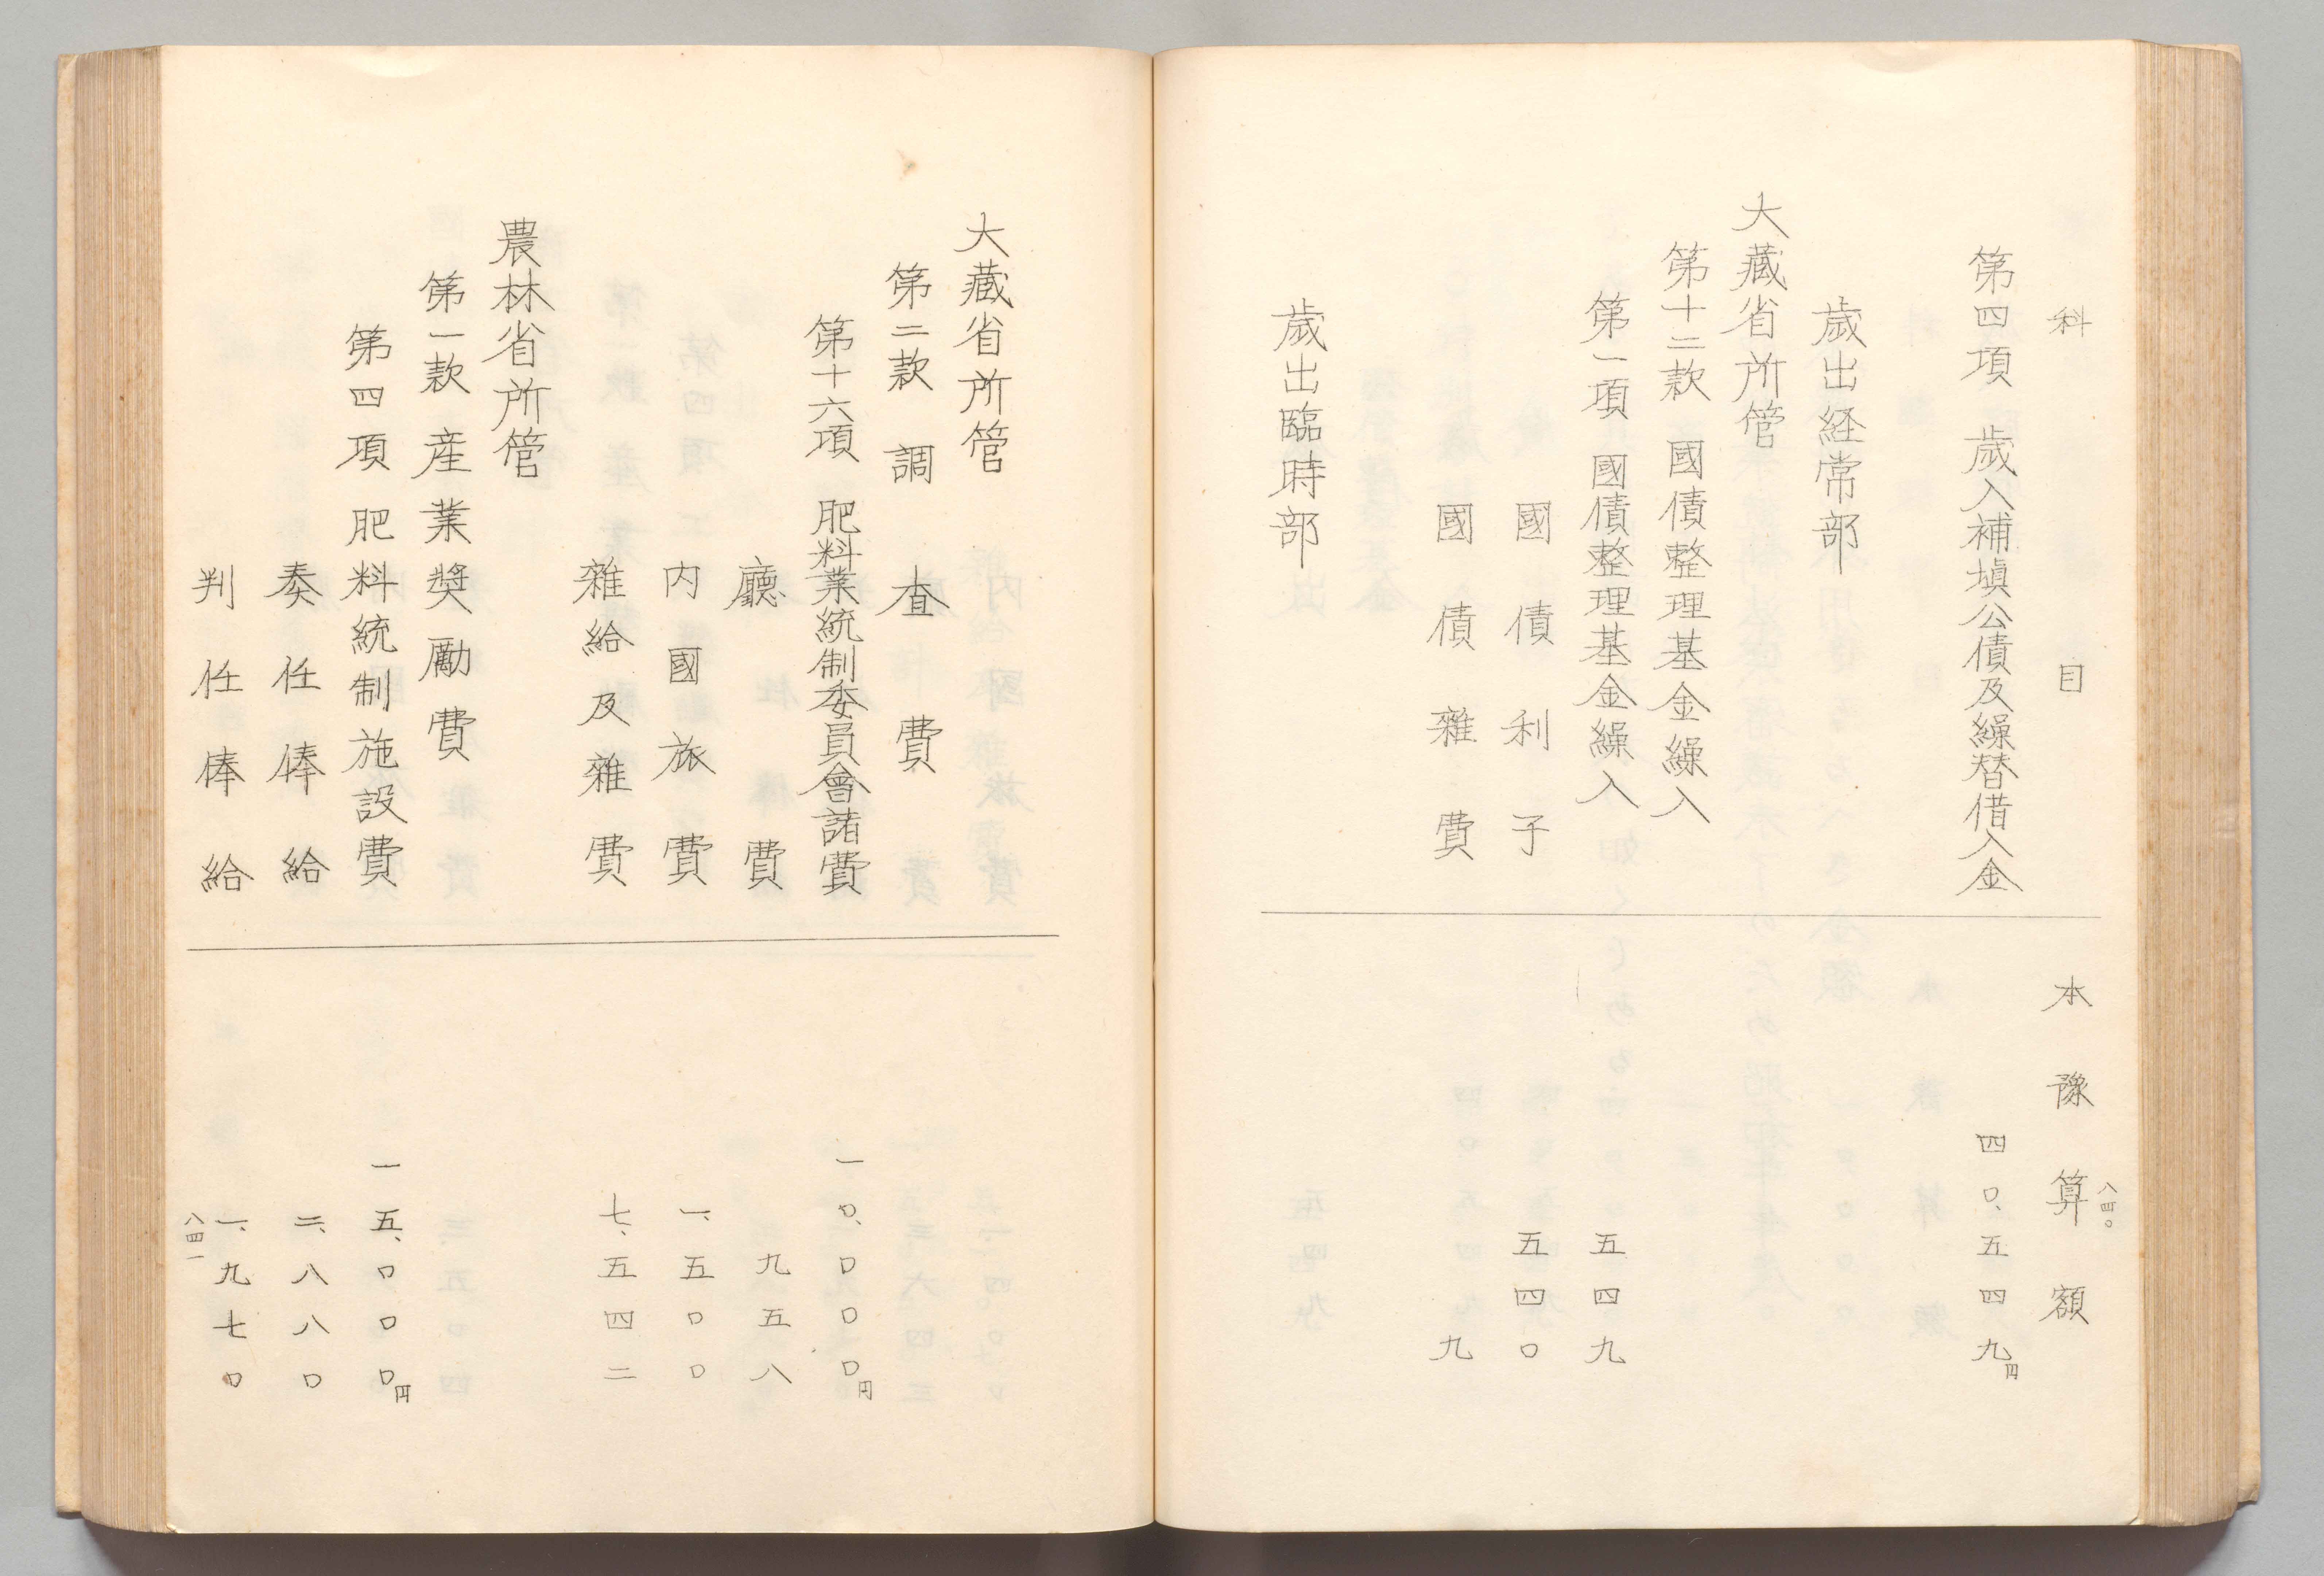 八四〇
科目 本豫算額
第四項 歳入補塡公債及繰替借入金 四〇、五四九円
歳出経常部
大藏省所管
第十二款 國債整理基金繰入
第一項 國債整理基金繰入 五四九
國債利子 五四〇
國債雜費 九
歳出臨時部
大藏省所管
第二款 調査費
第十六項 肥料業統制委員會諸費 一〇、〇〇〇円
廳費 九五八
内國旅費 一、五〇〇
雜給及雜費 七、五四二
農林省所管
第一款 産業奬勵費
第四項 肥料統制施設費 一五、〇〇〇円
奏任俸給 二、八八〇
判任俸給 一、九七〇
八四一